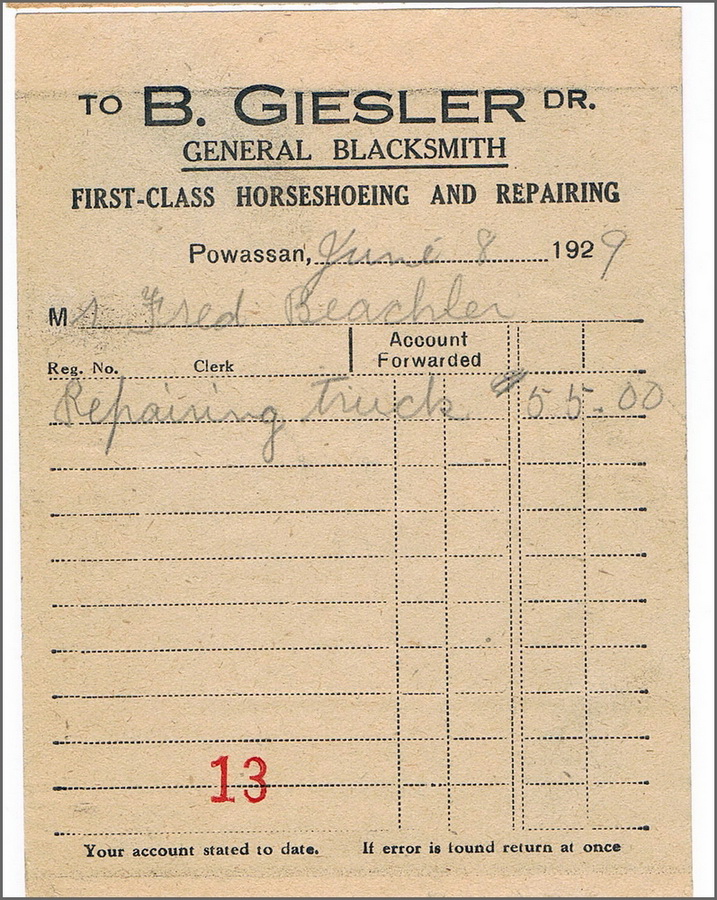 TO B. GIESLER DR.
GENERAL BLACKSMITH
FIRST-CLASS HORSESHOEING AND REPAIRING
Powassan, June 8 1929
Mr. Fred Beachler
Account
Forwarded
Reg. No. Clerk
Repairing truck $55.00
13
Your account stated to date. If error is found return at once